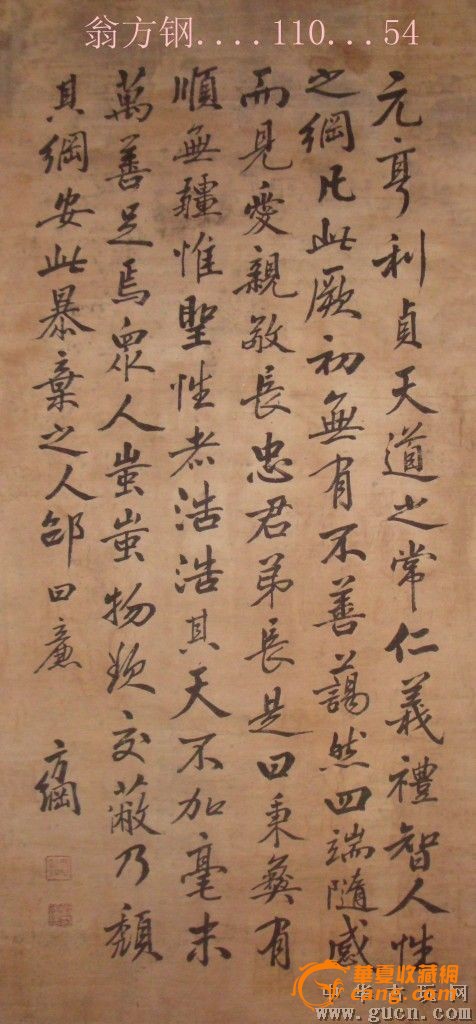 翁方钢....110...54
元亨利貞天道之常仁義禮智人性
之綱凡此厥初無有不善藹然四端隨感
而見愛親敬長忠君弟長是曰秉彝有
順無疆惟聖性者浩浩其天不加毫末
萬善足焉衆人蚩蚩物欲交蔽乃頹
其綱安此暴棄之人邵曰廉
方綱
華夏收藏網
cang.com
中华古玩网
www.gucn.com